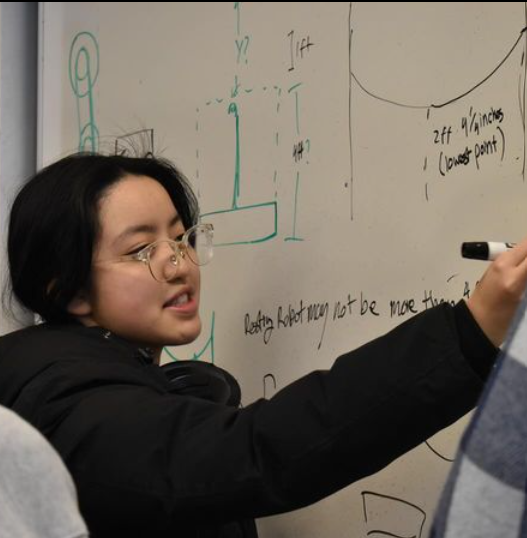 Y?
1ft
4ft?
2ft 4 1/4 inches
(lowest point)
Resting Robot may not be more than 4